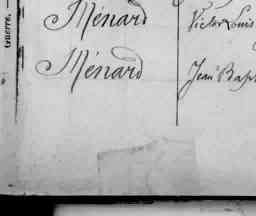 Ménard Victor Louis
Ménard Jean Bap